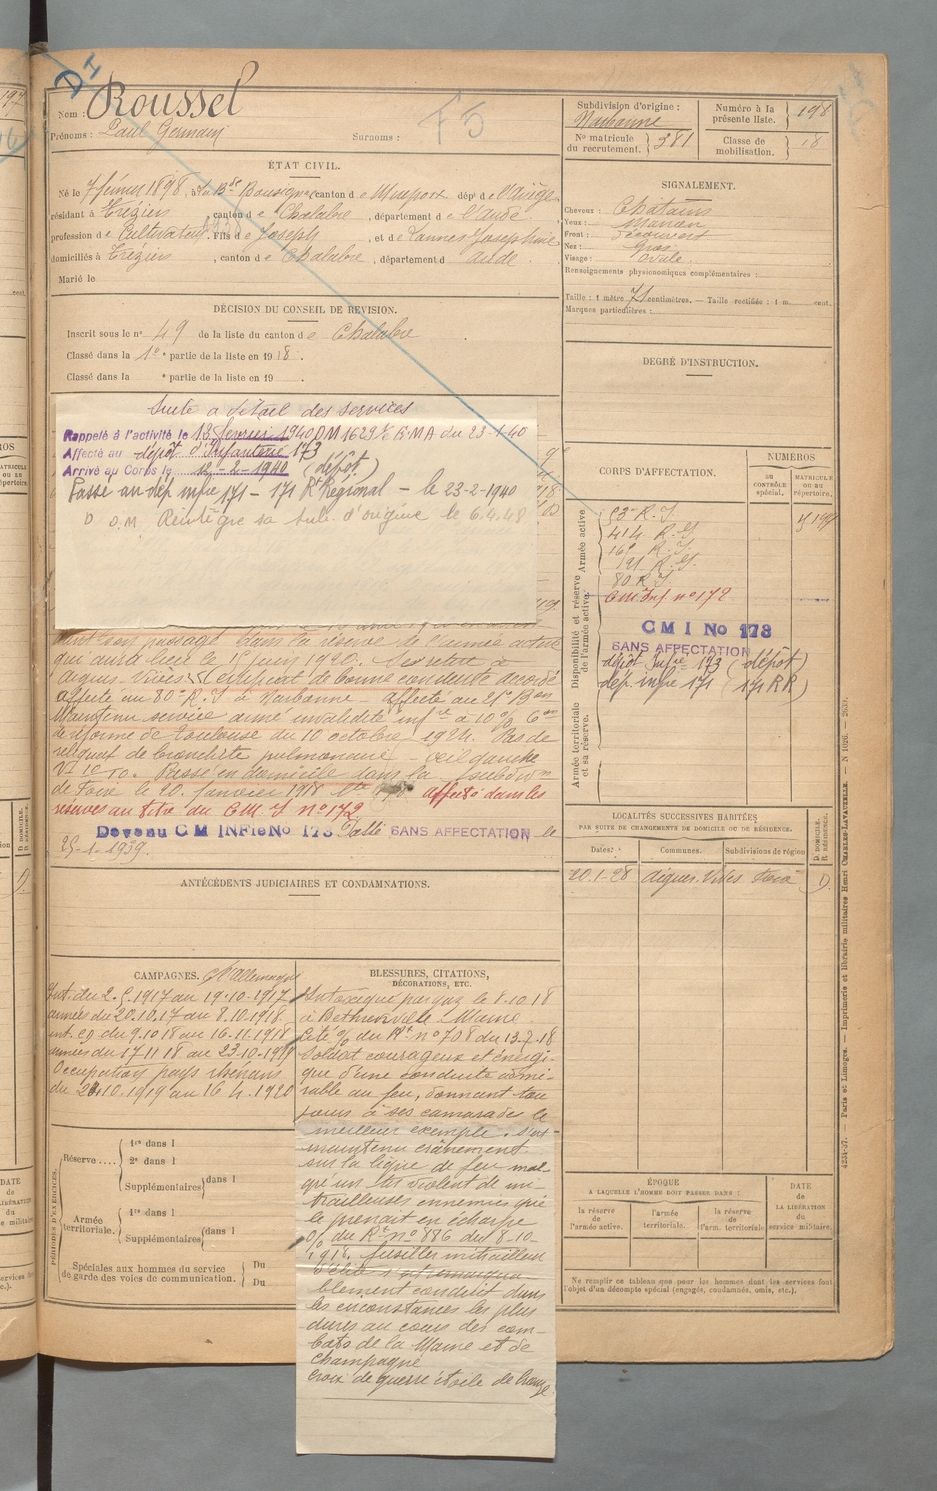 Nom : Roussel
Prénoms : Paul Germain
Surnoms :
F5
Subdivision d'origine :
Narbonne
Numéro à la présente liste. 198
No matricule du recrutement. 381
Classe de mobilisation. 18
ÉTAT CIVIL.
Né le 7 février 1898, à canton de Mirepoix dépt de l'Ariège
résidant à Tréziers, canton de Chalabre, département de l'aude
profession de Cultivateur, Fils de Joseph, et de Lannes Joséphine
domiciliés à Tréziers, canton de Chalabre, département d aude.
Marié le
SIGNALEMENT.
Cheveux : Chatains
Yeux : Marron
Front : Découvert
Nez : Gros
Visage : Ovale.
Renseignements physionomiques complémentaires :
Taille : 1 mètre 71 centimètres. — Taille rectifiée : 1 m. cent.
Marques particulières :
DÉCISION DU CONSEIL DE REVISION.
Inscrit sous le n° 49 de la liste du canton de Chalabre
Classé dans la 1e partie de la liste en 1918.
Classé dans la e partie de la liste en 19
DEGRÉ D'INSTRUCTION.
Suite a détail des services
Rappelé à l'activité le 13 février 1940 DM 1629 EMA du 23-1-40
Affecté au dépôt d'Infanterie 173
Arrivé au Corps le 12-2-1940 (dépôt)
Passé au dép infie 171 – 171 Rt Régional – le 23-2-1940
D O.M Réintègre sa sub. d'origine le 6.4.48
son passage dans la réserve de l'armée active
qui aura lieu le 1920. Se retire à
Aigues-Vives. Certificat de bonne conduite accordé
affecté au 80e R.I à Narbonne affecté au 21e Bon
Maintenu service armé invalidité infre à 10% 6e on
de réforme de Toulouse du 10 octobre 1924. Pas de
reliquat de bronchite pulmonaire oeil gauche
Passé en domicile dans la subdivon
de Foix le 20 Janvier 1928 affecté dans les
réserves au titre du C M I n° 172
Devenu C M INFie No 173. Passé SANS AFFECTATION le
25-1-1939.
CORPS D'AFFECTATION.
NUMÉROS
AU CONTRÔLE spécial.
MATRICULE OU AU répertoire.
Armée active
Disponibilité et réserve de l'armée active.
Armée territoriale et sa réserve.
53e R.I
414e R.I
R.I.
R.I.
80 R.I
CM Inf n° 172
C M I No 173
SANS AFFECTATION
dépôt Infie 173 (dépôt)
dép. infie 171 (171 RR)
ANTÉCÉDENTS JUDICIAIRES ET CONDAMNATIONS.
LOCALITÉS SUCCESSIVES HABITÉES
PAR SUITE DE CHANGEMENTS DE DOMICILE OU DE RÉSIDENCE.
Dates.
Communes.
Subdivisions de région
D. DOMICILE. R. RÉSIDENCE.
20.1-28 Aigues-Vives Foix D.
CAMPAGNES. Ctre allemagne
Int. du 2.5.1917 au 19-10-1917
armées du 20.10.17 au 8.10.1918
int. CD du 9.10 18 au 16-11-1918
armées du 17 11 18 au 23-10-1919
Occupation pays rhénans
du 24.10.1919 au 16 4.1920
BLESSURES, CITATIONS, DÉCORATIONS, ETC.
Intoxiqué par gaz le 8.10.18
à Bétheniville Marne
Cité O/ du Rt n° 708 du 13-7-18
Soldat courageux et énergi-
que d'une conduite admi-
rable au feu, donnant tou
jours à ses camarades le
meilleur exemple. S'est
maintenu crânement
sur la ligne de feu mal-
gré un tir violent de mi-
trailleuses ennemies qui
le prenait en écharpe
O/ du Rt n° 886 du 8-10-
1918. fusilier mitrailleur
d'élite s'est remarqua-
blement conduit dans
les circonstances les plus
dures au cours des com-
bats de la Marne et de
champagne
Croix de guerre étoile de bronze
PÉRIODES D'EXERCICES.
Réserve .... 1re dans l
2e dans l
Supplémentaires dans l
Armée territoriale. 1re dans l
Supplémentaires dans l
Spéciales aux hommes du service de garde des voies de communication. Du
Du
ÉPOQUE
A LAQUELLE L'HOMME DOIT PASSER DANS :
la réserve de l'armée active.
l'armée territoriale.
la réserve de l'arm. territoriale
DATE de LA LIBÉRATION du service militaire.
Ne remplir ce tableau que pour les hommes dont les services font l'objet d'un décompte spécial (engagés, condamnés, omis, etc.).
Paris et Limoges. — Imprimerie et librairie militaires Henri CHARLES-LAVAUZELLE.